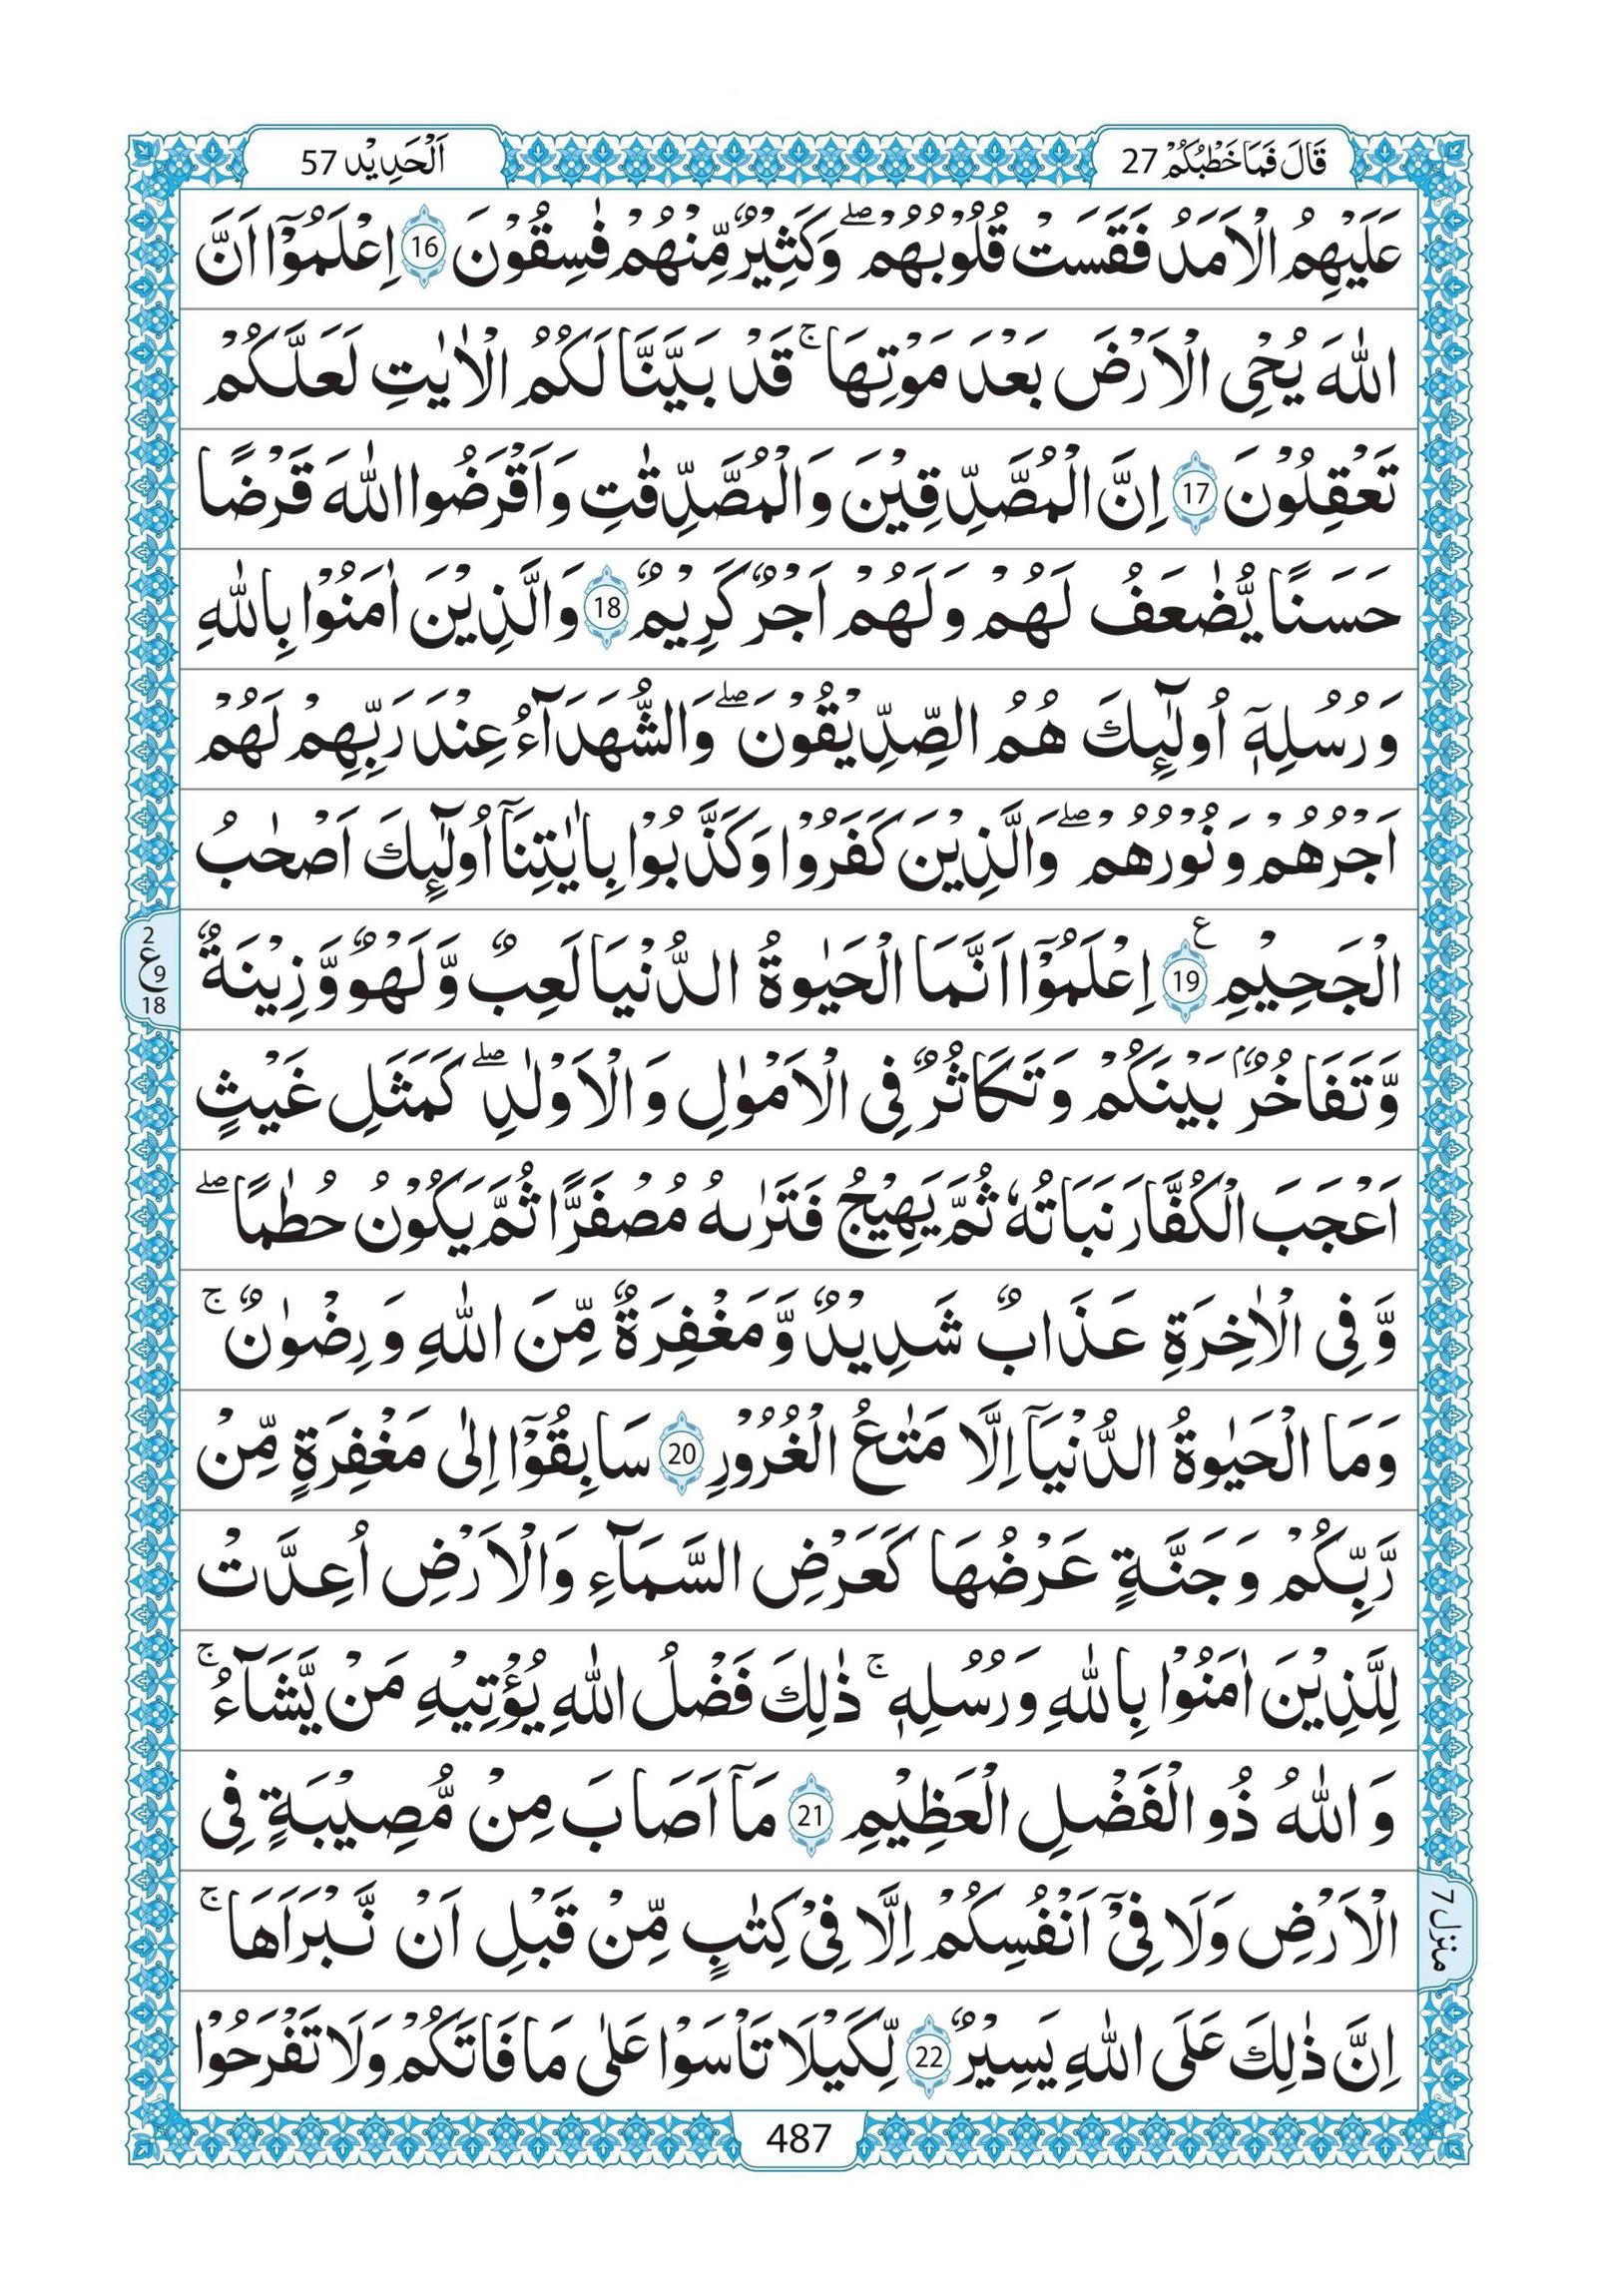 قَالَ فَمَا خَطْبُكُمْ 27
اَلْحَدِيْد 57
عَلَيْهِمُ الْاَمَدُ فَقَسَتْ قُلُوْبُهُمْ ۖ وَكَثِيْرٌ مِّنْهُمْ فٰسِقُوْنَ 16 اِعْلَمُوْٓا اَنَّ
اللّٰهَ يُحْيِ الْاَرْضَ بَعْدَ مَوْتِهَا ۚ قَدْ بَيَّنَّا لَكُمُ الْاٰيٰتِ لَعَلَّكُمْ
تَعْقِلُوْنَ 17 اِنَّ الْمُصَّدِّقِيْنَ وَالْمُصَّدِّقٰتِ وَاَقْرَضُوا اللّٰهَ قَرْضًا
حَسَنًا يُّضٰعَفُ لَهُمْ وَلَهُمْ اَجْرٌ كَرِيْمٌ 18 وَالَّذِيْنَ اٰمَنُوْا بِاللّٰهِ
وَرُسُلِهٖٓ اُولٰٓئِكَ هُمُ الصِّدِّيْقُوْنَ ۖ وَالشُّهَدَآءُ عِنْدَ رَبِّهِمْ لَهُمْ
اَجْرُهُمْ وَنُوْرُهُمْ ۖ وَالَّذِيْنَ كَفَرُوْا وَكَذَّبُوْا بِاٰيٰتِنَآ اُولٰٓئِكَ اَصْحٰبُ
الْجَحِيْمِ 19 ع اِعْلَمُوْٓا اَنَّمَا الْحَيٰوةُ الدُّنْيَا لَعِبٌ وَّلَهْوٌ وَّزِيْنَةٌ
2 ع 9 18
وَّتَفَاخُرٌۢ بَيْنَكُمْ وَتَكَاثُرٌ فِى الْاَمْوٰلِ وَالْاَوْلٰدِ ۖ كَمَثَلِ غَيْثٍ
اَعْجَبَ الْكُفَّارَ نَبَاتُهٗ ثُمَّ يَهِيْجُ فَتَرٰىهُ مُصْفَرًّا ثُمَّ يَكُوْنُ حُطٰمًا ۖ
وَّفِى الْاٰخِرَةِ عَذَابٌ شَدِيْدٌ وَّمَغْفِرَةٌ مِّنَ اللّٰهِ وَرِضْوٰنٌ ۚ
وَمَا الْحَيٰوةُ الدُّنْيَآ اِلَّا مَتٰعُ الْغُرُوْرِ 20 سَابِقُوْٓا اِلٰى مَغْفِرَةٍ مِّنْ
رَّبِّكُمْ وَجَنَّةٍ عَرْضُهَا كَعَرْضِ السَّمَآءِ وَالْاَرْضِ اُعِدَّتْ
لِلَّذِيْنَ اٰمَنُوْا بِاللّٰهِ وَرُسُلِهٖ ۚ ذٰلِكَ فَضْلُ اللّٰهِ يُؤْتِيْهِ مَنْ يَّشَآءُ ۚ
وَاللّٰهُ ذُو الْفَضْلِ الْعَظِيْمِ 21 مَآ اَصَابَ مِنْ مُّصِيْبَةٍ فِى
الْاَرْضِ وَلَا فِىْٓ اَنْفُسِكُمْ اِلَّا فِىْ كِتٰبٍ مِّنْ قَبْلِ اَنْ نَّبْرَاَهَا ۚ
منزل 7
اِنَّ ذٰلِكَ عَلَى اللّٰهِ يَسِيْرٌ 22 لِّكَيْلَا تَاْسَوْا عَلٰى مَا فَاتَكُمْ وَلَا تَفْرَحُوْا
487